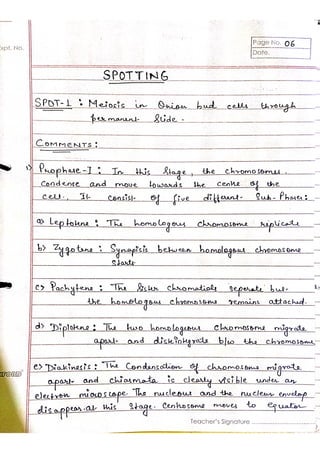 Page No. 06
Date.
Expt. No.
SPOTTING
SPOT-1 : Meiosis in Onion bud cells through
permanent Slide.
COMMENTS :
1) Prophase-I : In this Stage, the chromosomes
Condense and move towards the centre of the
cell. It consist of five different Sub-Phases:
a) Leptotene : The homologous chromosome replicate
b) Zygotene : Synapsis between homologous chromosome
starts
c) Pachytene : The Sister chromatids seperate but
the homologous chromosome remains attached.
d) Diplotene : The two homologous chromosome migrate
apart and disintegrate b/w the chromosome
e) Diakinesis : The Condensation of chromosome migrate
apart and chiasmata is clearly visible under an
electron microscope. The nucleous and the nuclear envelop
disappear at this Stage. Centrosome moves to equator
Teacher's Signature